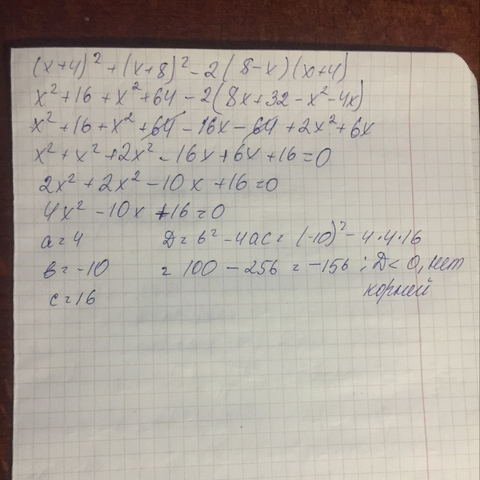 (x+4)² + (x+8)² - 2(8-x)(x+4)
x² + 16 + x² + 64 - 2(8x+32-x²-4x)
x² + 16 + x² + 64 - 16x - 64 + 2x² + 6x
x² + x² + 2x² - 16x + 6x + 16 = 0
2x² + 2x² - 10x + 16 = 0
4x² - 10x + 16 = 0
a = 4 D = b² - 4ac = (-10)² - 4·4·16
b = -10 = 100 - 256 = -156 ; D < 0, нет
c = 16 корней